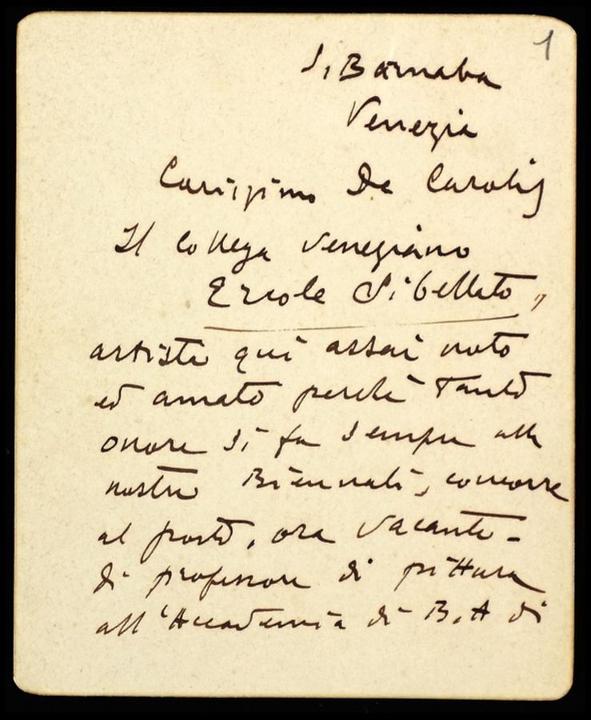 1
S. Barnaba
Venezia
Carissimo De Carolis
Il collega veneziano
Ercole Sibellato,
artista qui assai noto
ed amato perchè tanto
onore si fa sempre alle
nostre Biennali, concorre
al posto, ora vacante-
di professore di pittura
all'Accademia di B.A di